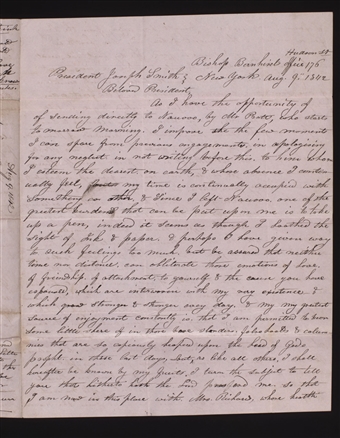 Hudson St
Bishop Bernhisels office 176
President Joseph Smith New York Aug. 9. 1842
Beloved President,
As I have the opportunity of
of sending directly to Nauvoo, by Mr Pratt, who starts
to morrow morning. I improve the few moment
I can spare from pressing engagements, in apologizing
for any neglect in not writing before this, to him whom
I esteem the dearest on earth, & whose absence I contin-
ually feel, my time is continually occupied with
Something or other, & Since I left Nauvoo one of the
greatest that can be put upon me is to take
up a pen, indeed it seems as though I loathed the
Sight of Ink & paper. & perhaps I have given way
to such feelings too much, but be assured that neither
time nor distance, can obliterate those emotions of love,
of friendship, of attachment, to yourself & the cause we have
espoused, which are interwoven with my very existence &
which grow stronger & stronger every day. & my greatest
Source of enjoyment constantly is, that I am permitted to bear
some little share of in those base slanders, falsehoods & calum-
nies that are so copiously heaped upon the head of Gods
people in these last days, but, as like all others, I shall
be known by my fruits, I turn the subject to tell
you that hitherto hath the Lord prospered me. so that
I am now in this place with Mrs. Richards, whose health